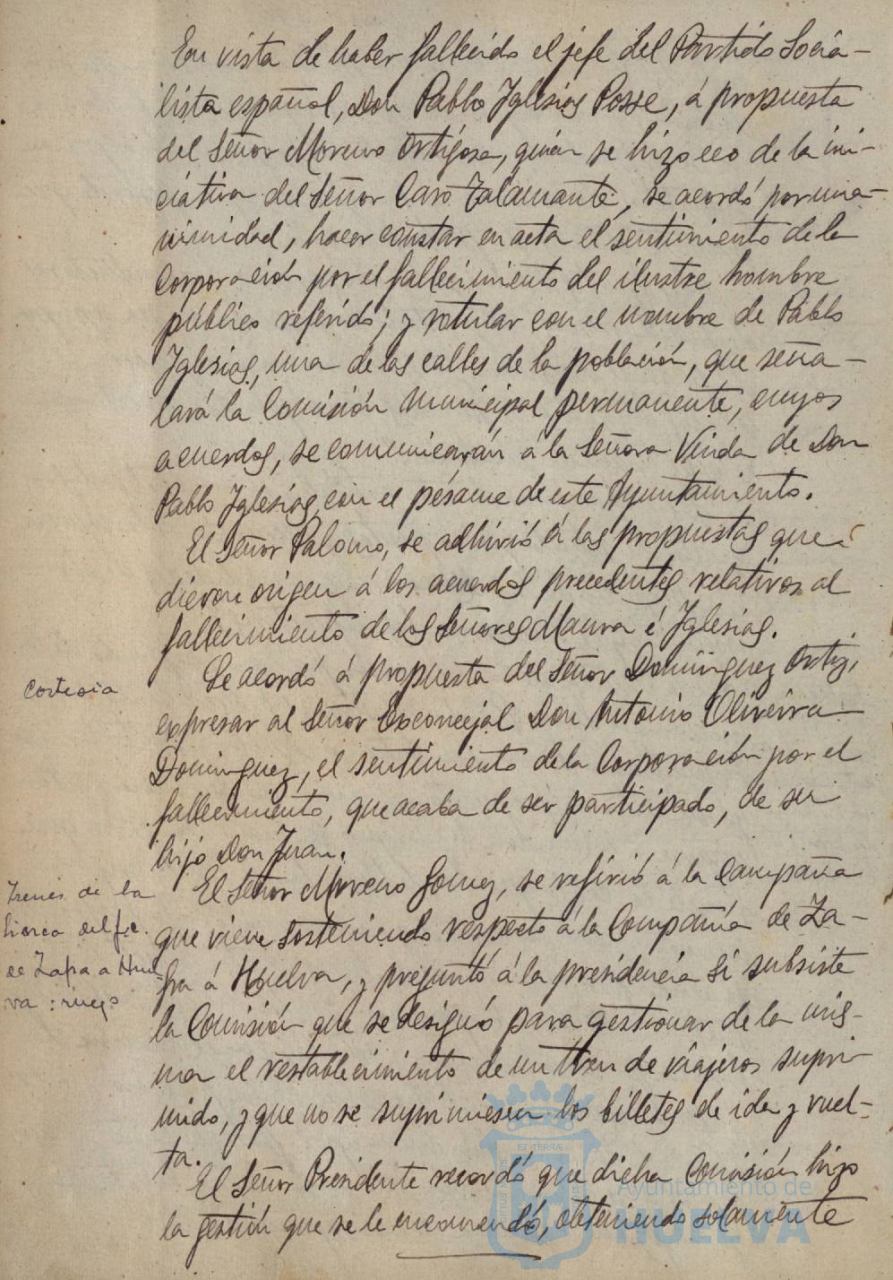 En vista de haber fallecido el jefe del Partido Socia-
lista español, Don Pablo Iglesias Posse, á propuesta
del Señor Moreno Ortigosa, quién se hizo eco de la ini-
ciativa del Señor Caro Talamante, se acordó por una-
nimidad, hacer constar en acta el sentimiento de la
Corporación por el fallecimiento del ilustre hombre
público referido; y rotular con el nombre de Pablo
Iglesias, una de las calles de la población, que seña-
lará la Comisión municipal permanente, cuyos
acuerdos, se comunicarán á la Señora Viuda de Don
Pablo Iglesias, con el pésame de este Ayuntamiento.
El Señor Palomo, se adhirió á las propuestas que
dieron origen á los acuerdos precedentes relativos al
fallecimiento de los Señores Maura é Iglesias.
Cortesia
Se acordó á propuesta del Señor Dominguez Ortiz,
expresar al Señor Exconcejal Don Antonio Oliveira
Dominguez, el sentimiento de la Corporación por el
fallecimiento, que acaba de ser participado, de su
hijo Don Juan.
Trenes de la
linea del f.c.
de Zafra a Huel
va: ruego
El Señor Moreno Gomez, se refirió á la Campaña
que viene sosteniendo respecto á la Compañía de Za-
fra á Huelva, y preguntó á la presidencia si subsiste
la Comisión que se designó para gestionar de la mis-
ma el restablecimiento de un tren de viajeros supri-
mido, y que no se suprimiesen los billetes de ida y vuel-
ta.
El Señor Presidente recordó que dicha Comisión hizo
la gestión que se le encomendó, obteniendo solamente
Ayuntamiento de
HUELVA